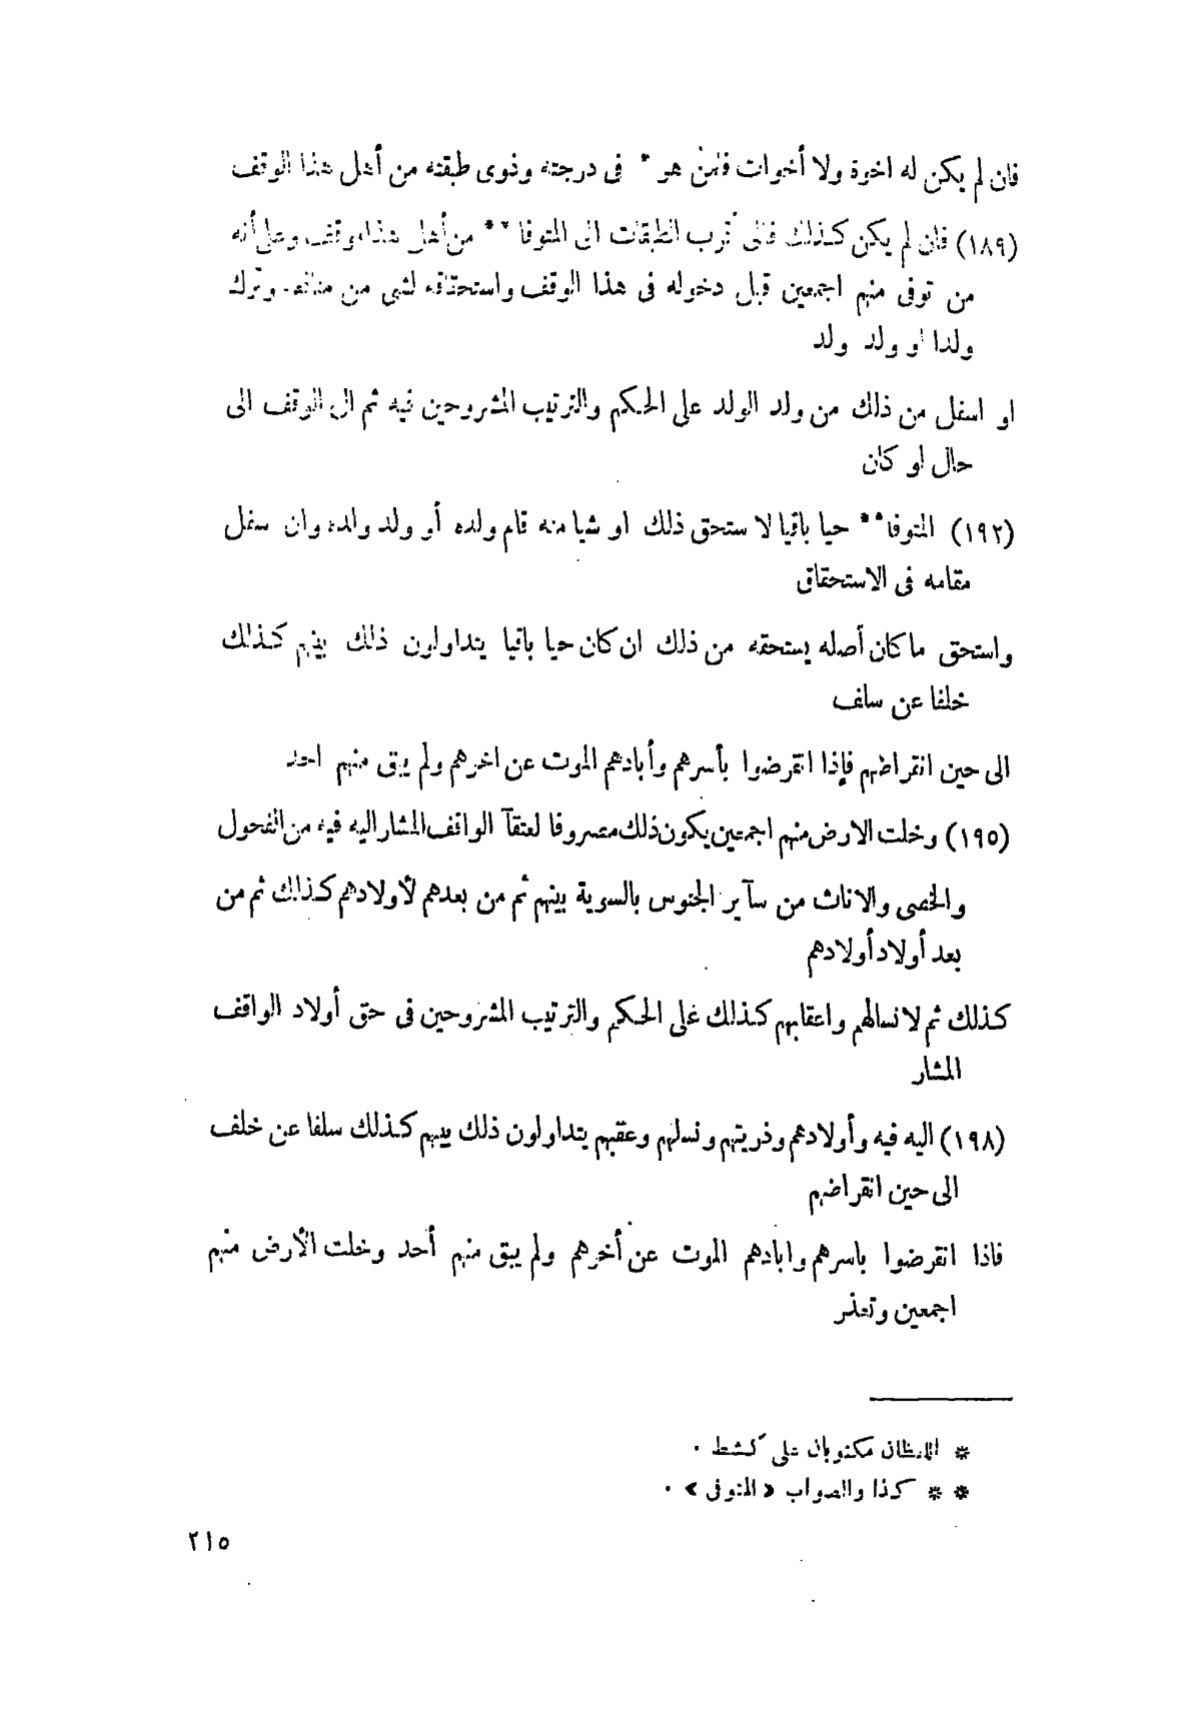 فان لم يكن له اخوة ولا أخوات فلمن هو * فى درجته وذوى طبقته من أهل هذا الوقف
(١٨٩) فان لم يكن كذلك فالى أقرب الطبقات الى المتوفا ** من أهل هذا وقف وعلى أنه
من توفى منهم اجمعين قبل دخوله فى هذا الوقف واستحقاقه لشى من منافعه وترك
ولدا او ولد ولد
او اسفل من ذلك من ولد الولد على الحكم والترتيب المشروحين فيه ثم ال الوقف الى
حال لو كان
(١٩٢) المتوفا** حيا باقيا لا ستحق ذلك او شيا منه قام ولده أو ولد ولده وان سفل
مقامه فى الاستحقاق
واستحق ما كان أصله يستحقه من ذلك ان كان حيا باقيا يتداولون ذلك بينهم كذلك
خلفا عن سلف
الى حين انقراضهم فإذا انقرضوا بأسرهم وأبادهم الموت عن اخرهم ولم يبق منهم احد
(١٩٥) وخلت الارض منهم اجمعين يكون ذلك مصروفا لعتقآ الواقف المشار اليه فيه من الفحول
والخصى والاناث من سآير الجنوس بالسوية بينهم ثم من بعدهم لأولادهم كذلك ثم من
بعد أولاد أولادهم
كذلك ثم لانسالهم واعقابهم كذلك على الحكم والترتيب المشروحين فى حق أولاد الواقف
المشار
(١٩٨) اليه فيه وأولادهم وذريتهم ونسلهم وعقبهم يتداولون ذلك بينهم كذلك سلفا عن خلف
الى حين انقراضهم
فاذا انقرضوا باسرهم وابادهم الموت عن أخرهم ولم يبق منهم أحد وخلت الأرض منهم
اجمعين وتعذر
* اللفظان مكتوبان على كشط .
** كذا والصواب «المتوفى» .
٢١٥